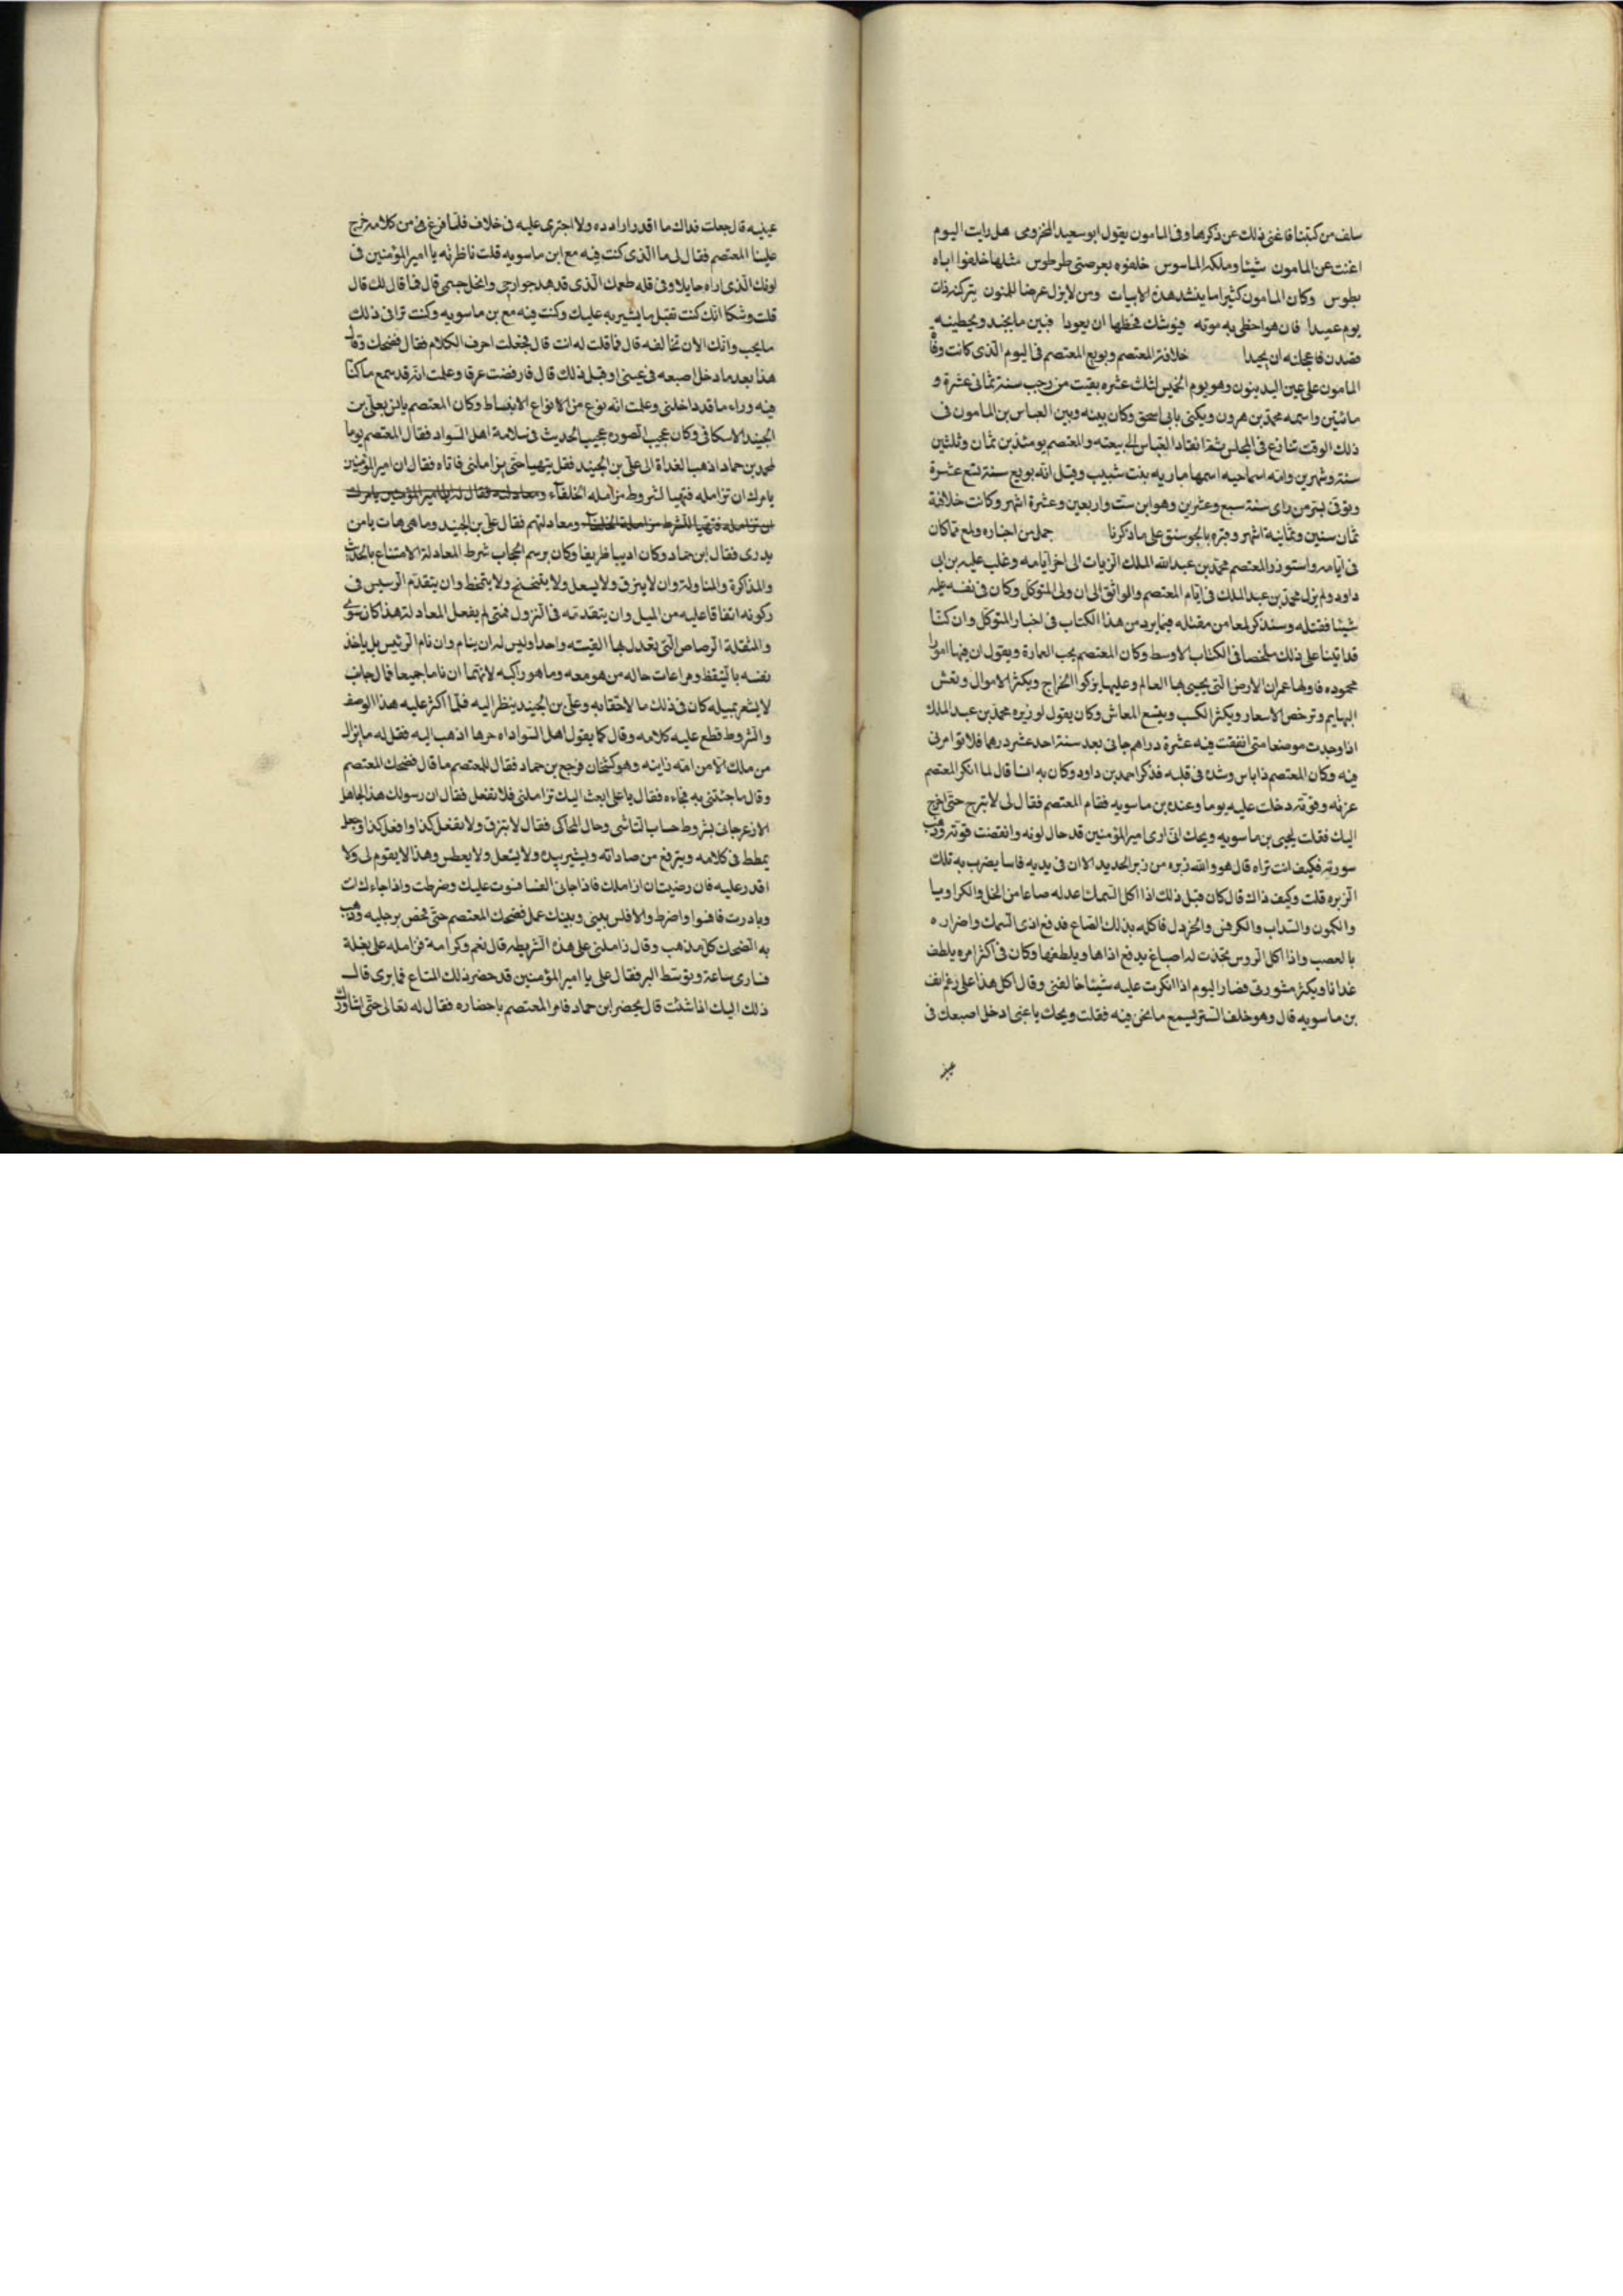 سلف من كتبنا فاغنى ذلك عن ذكرها وفى المامون يقول ابو سعيد المخزومى هل رايت اليوم
اغنت عن المامون شيئا وملكه الماسوس خلفوه بعرصتى طرطوس مثلها خلفوا اباه
بطوس وكان المامون كثيرا ما ينشد هذه الابيات ومن لايزل عرضا للمنون يتركنه ذات
يوم عميدا فان هو اخطى به موته فيوشك مخطها ان يعودا فبين ما يحيد ويحطينه
فصدن فاعجلنه ان يحيدا خلافة المعتصم وبويع المعتصم فى اليوم الذى كانت وفاة
المامون على عين البديدون وهو يوم الخميس لثلث عشره بقيت من رجب سنة ثمانى عشرة و
مائتين واسمه محمد بن هرون ويكنى بابى اسحق وكان بينه وبين العباس بن المامون فى
ذلك الوقت تنازع فى المجلس ثم انقاد العباس الى بيعته والمعتصم يومئذ بن ثمان وثلثين
سنة وشهرين وامه اسماحيه اسمها ماريه بنت شبيب وقيل انه بويع سنة تسع عشرة
وتوفى بسر من راى سنة سبع وعشرين وهو ابن ست واربعين وعشرة اشهر وكانت خلافته
ثمان سنين وثمانية اشهر وقبره بالجوسنق على ما ذكرنا جمل من اخباره ولمع مما كان
فى ايامه واستوزر المعتصم محمد بن عبد الله الملك الزيات الى اخر ايامه وغلب عليه بن ابى
داود ولم يزل محمد بن عبد الملك فى ايام المعتصم والواثق الى ان ولى المتوكل وكان فى نفسه عليه
شيئا فقتله وسنذكر لمعا من مقتله فيما يرد من هذا الكتاب فى اخبار المتوكل وان كنا
قد اتينا على ذلك ملخصا فى الكتاب الاوسط وكان المعتصم يحب العمارة ويقول ان فيها امورا
محموده فاولها عمران الارض التى يحيى بها العالم وعليها يزكوا الخراج ويكثر الاموال وتعش
البهايم وترخص الاسعار ويكثر الكسب ويتسع المعاش وكان يقول لوزيره محمد بن عبد الملك
اذا وجدت موضعا متى انفقت فيه عشرة دراهم جانى بعد سنة احد عشر درهما فلا توامرنى
فيه وكان المعتصم ذا باس وشده فى قلبه فذكر احمد بن داود وكان به انسا قال لما انكر المعتصم
عزيمه وقوته دخلت عليه يوما وعنده بن ماسويه فقام المعتصم فقال لى لا تبرح حتى اخرج
اليك فقلت ليحيى بن ماسويه ويحك انى ارى امير المؤمنين قد حال لونه وانقضت قوته وذهبت
سورته فكيف انت تراه قال هو والله زبره من زبر الحديد الا ان فى يديه فاسا يضرب به تلك
الزبره قلت وكيف ذاك قال كان قبل ذلك اذا اكل السمك اعد له صاعا من الخل والكراويا
والكمون والسداب والكرفس والخردل فاكله بذلك الصاع فدفع اذى السمك واضراره
بالعصب واذا اكل الروس يتخذت له اصباغ يدفع اذاها ويلطفها وكان فى اكثر امره يلطف
غداءنا ويكثر مشورتى فصار اليوم اذا انكرت عليه شيئا خالفنى وقال اكل هذا على رغم انف
بن ماسويه قال وهو خلف الستر يسمع ما نحن فيه فقلت ويحك يا عنى ادخل اصبعك فى
عينيه
عينيه قال جعلت فداك ما اقدر ارادده ولا اجترى عليه فى خلاف فلما فرغ من كلامه خرج
علينا المعتصم فقال لى ما الذى كنت فيه مع ابن ماسويه قلت ناظرته يا امير المؤمنين فى
لونك الذى اراه حايلا وفى قله طعمك الذى قد هد جوارحى وانحل جسمى قال فما قال لك قال
قلت وشكا انك كنت تقبل ما يشير به عليك وكنت فيه مع بن ماسويه وكنت ترا فى ذلك
ما يحب وانك الان تخالفه قال فما قلت له انت قال فجعلت احرف الكلام فقال فضحك وقال
هذا بعد ما دخل اصبعه فى عينى او قبل ذلك قال فارفضت عرقا وعلمت انه قد سمع ما كنا
فيه وراى ما قد داخلنى وعلمت انه نوع من الانواع الانبساط وكان المعتصم يانس بعلى بن
الجنيد الاسكافى وكان عجيب الصورة عجيب الحديث فى سلامة اهل السواد فقال المعتصم يوما
لمحمد بن حماد اذهب الغداة الى على بن الجنيد فقل يتهيا حتى يزاملنى فاتاه فقال ان امير المؤمنين
يامرك ان تزامله فتهيا لشروط مزامله الخلفاء ومعادلته فقال له ان امير المؤمنين يامرك
ان تزامله فتهيا للشرط مزاملة الخلفاء ومعادلتهم فقال على بن الجنيد وما هى هات يا من
يدرى فقال ابن حماد وكان اديبا ظريفا وكان برسم الحجاب شرط المعادلة الامتناع بالحديث
والمذاكرة والمناولة وان لا يبزق ولا يسعل ولا يتنحنح ولا يتمخط وان يتقدم الرييس فى
ركونه اتفاقا عليه من الميل وان يتقدمه فى النزول فمتى لم يفعل المعادل هذا كان سوى
والمثقلة الرصاص التى تعدل بها القبته واحدا وليس له ان ينام وان نام الرئيس بل ياخذ
نفسه بالتيقظ ومراعات حاله من هو معه وما هو راكبه لانهما ان ناما جميعا فمال جانب
لا يشعر بميله كان فى ذلك ما لا خفا به وعلى بن الجنيد ينظر اليه فلما اكثر عليه هذا الوصف
والشروط قطع عليه كلامه وقال كما يقول اهل السواد اه حرها اذهب اليه فقل له ما يزال
من ملك الا من امه زانيه وهو كشخان فرجع بن حماد فقال للمعتصم ما قال فضحك المعتصم
وقال ما جئتنى به فجاءه فقال يا على ابعث اليك تزاملنى فلا تفعل فقال ان رسولك هذا الجاهل
الازعر جانى بشروط حساب الشاشى وحال المحاكى فقال لا تبزق ولا تفعل كذا وافعل كذا وجعل
يمطط فى كلامه ويترفع من صاداته ويشير بيده ولا يسعل ولا يعطس وهذا لا يقوم لى ولا
اقدر عليه فان رضيت ان ازاملك فاذا جانى الفسا فسوت عليك وضرطت واذا جاءك انت
وبادرت فافسوا واضرط والا فليس بينى وبينك عمل فضحك المعتصم حتى فحص برجليه وذهب
به الضحك كل مذهب وقال زاملنى على هذه الشريطه قال نعم وكرامة فزامله على بغلة
فسارى ساعة وتوسط البر فقال على يا امير المؤمنين قد حضر ذلك المتاع فما ترى قال
ذلك اليك اذا شئت قال يحضر ابن حماد فامر المعتصم باحضاره فقال له تعالى حتى اشاورك